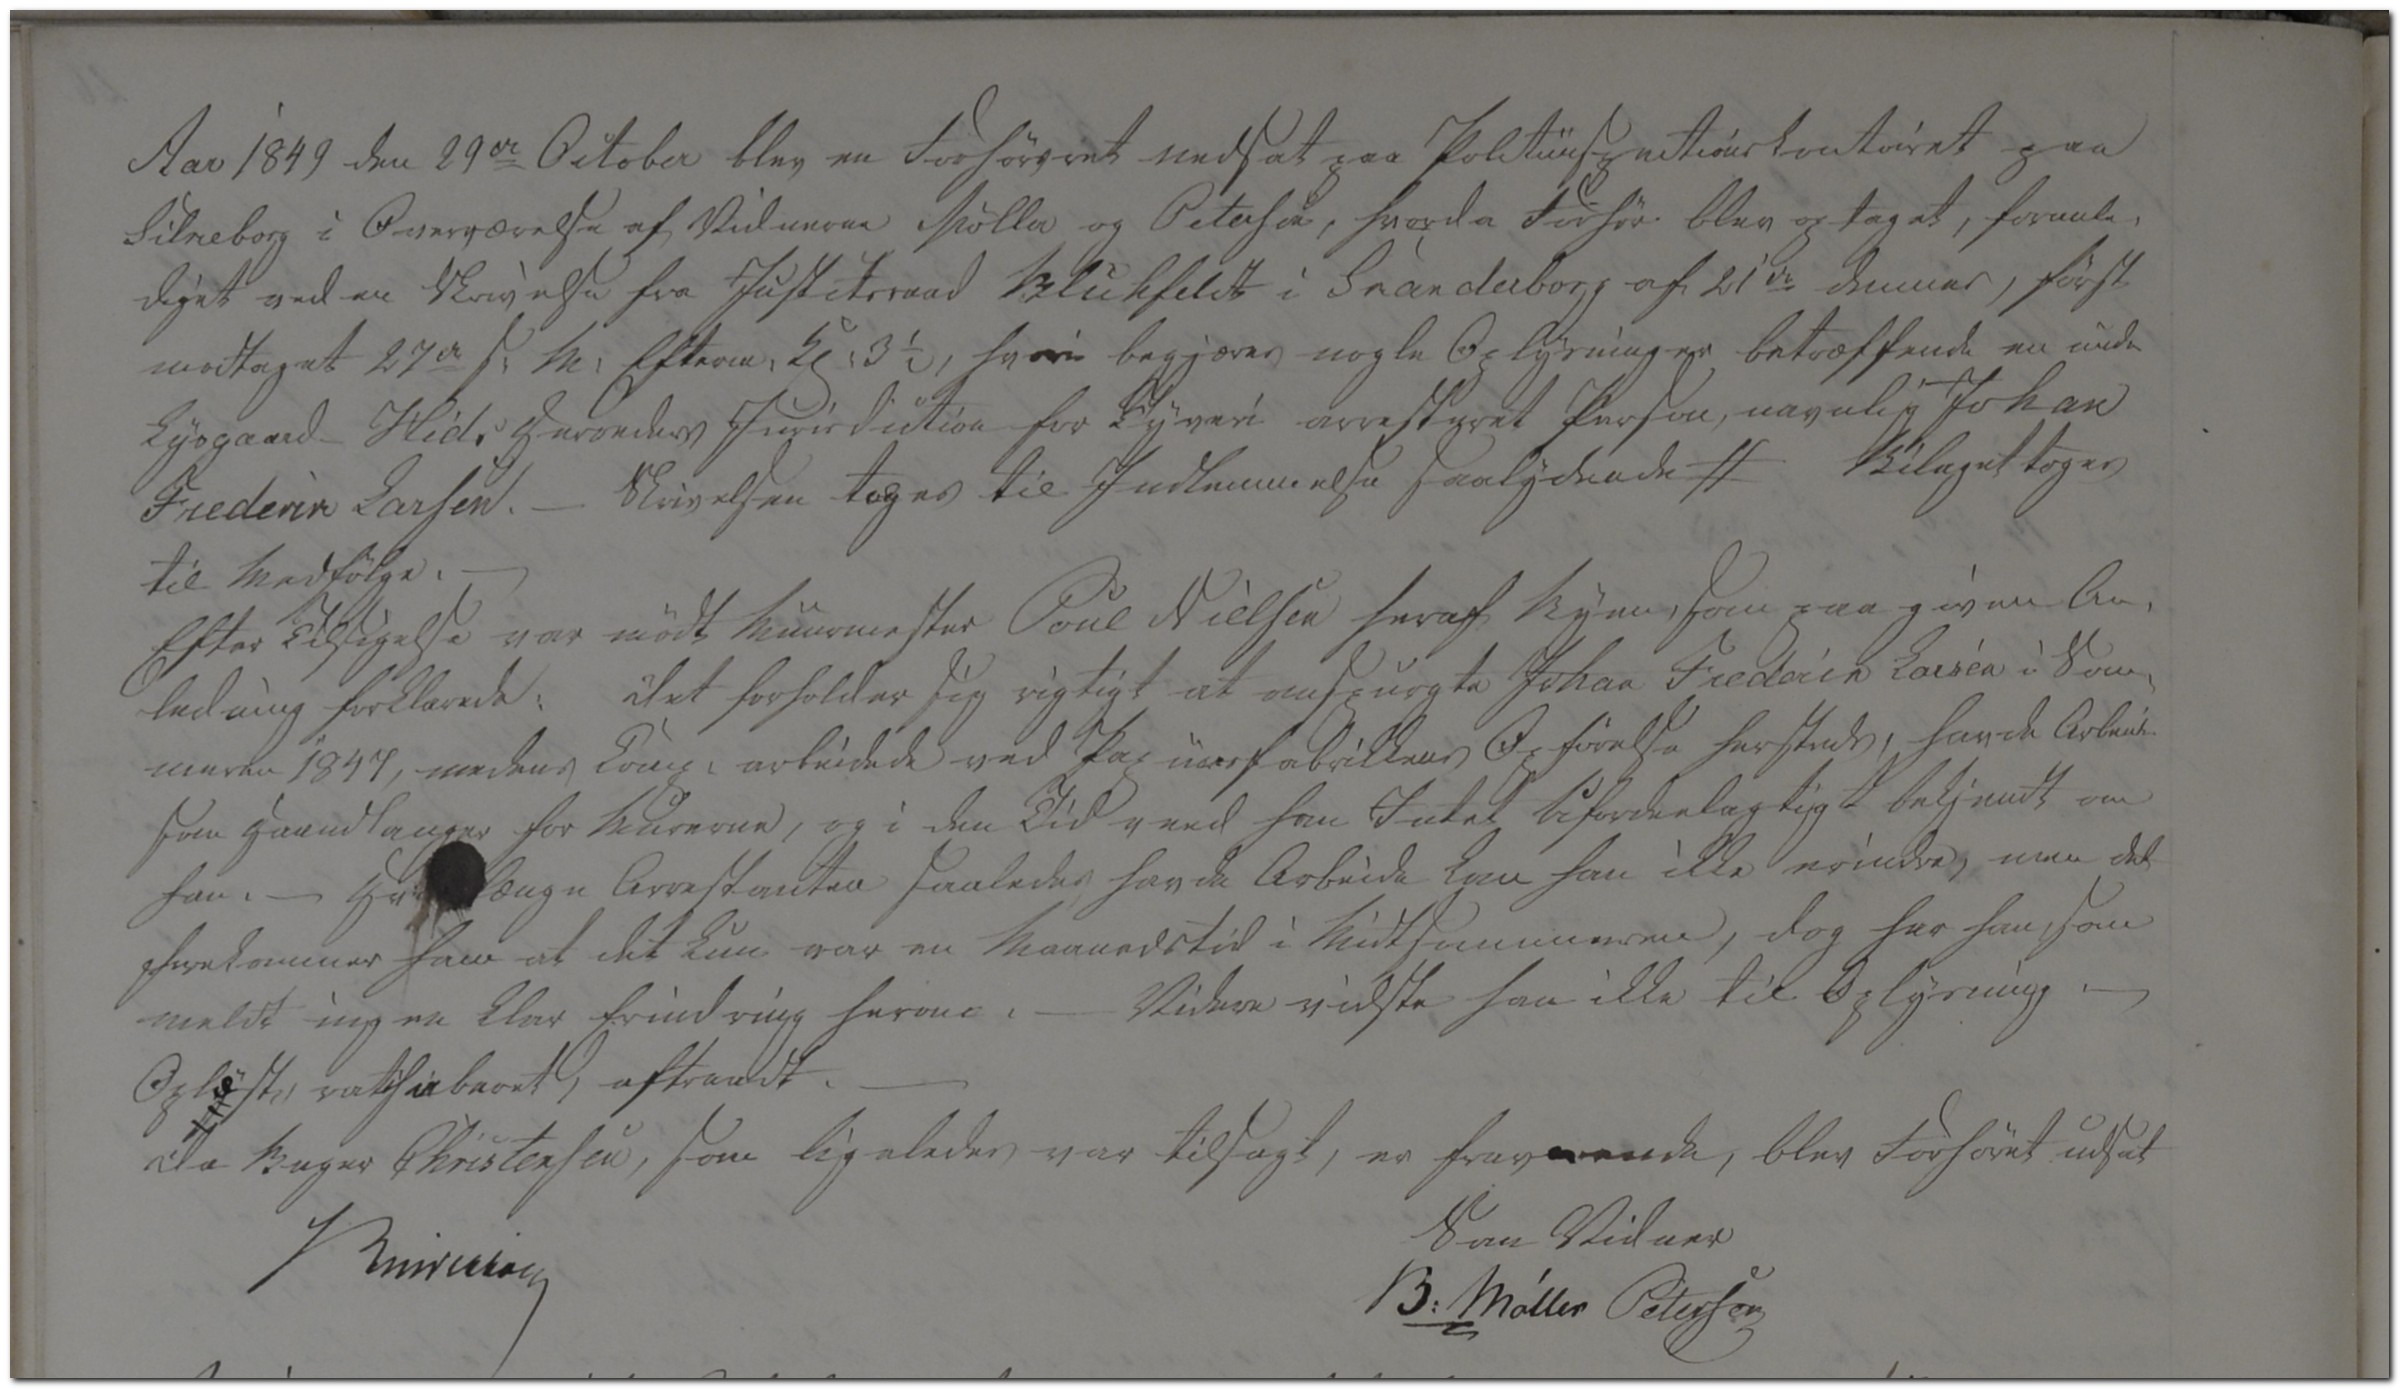 Aar 1849 den 29de October blev en Forhörsret nedsat paa Politiinspectionskontoiret paa
Silkeborg i Overværelse af Vidnerne Möller og Petersen, hvorda Forhör blev optaget, foranle,
diget ved en Skrivelse fra Justitsraad Bluhfeldt i Skanderborg af 21de dennes, först
modtaget 27de s: M: Efterm: Kl: 3½, hvori begjæres nogle Oplysninger betræffende en under
Lysgaard-Hids Herreders Jurisdiction for Tyveri arresteret Person, navnlig Johan
Frederik Larsen. — Skrivelsen toges til Indlemmelse saalydende // Bilaget toges
til Medfölge. —
Efter Tilsigelse var mödt Muurmester Poul Nielsen heraf Byen, som paa given An,
ledning forklarede: Det forholder sig rigtigt at omspurgte Johan Frederik Larsen i Som,
meren 1847, medens Comp. arbeidede ved Papiirfabrikkens Opförelse hersteds, havde Arbeide
som Haandlanger for Murerne, og i den Tid veed han Intet ufordeelagtigt bekjendt om
ham. — længe Arrestanten saaledes havde Arbeide kan han ikke erindre, men det
forekommer ham at det kun var en Maanedstid i Midtsommeren, dog har han, som
meldt ingen klar Erindring herom. — Videre vidste han ikke til Oplysning. —
Oplæst, ratihaberet, aftraadt. —
Da Bager Christensen, som ligeledes var tilsagt, er fraværende, blev Forhöret udsat
Som Vidner
B: Möller Petersen